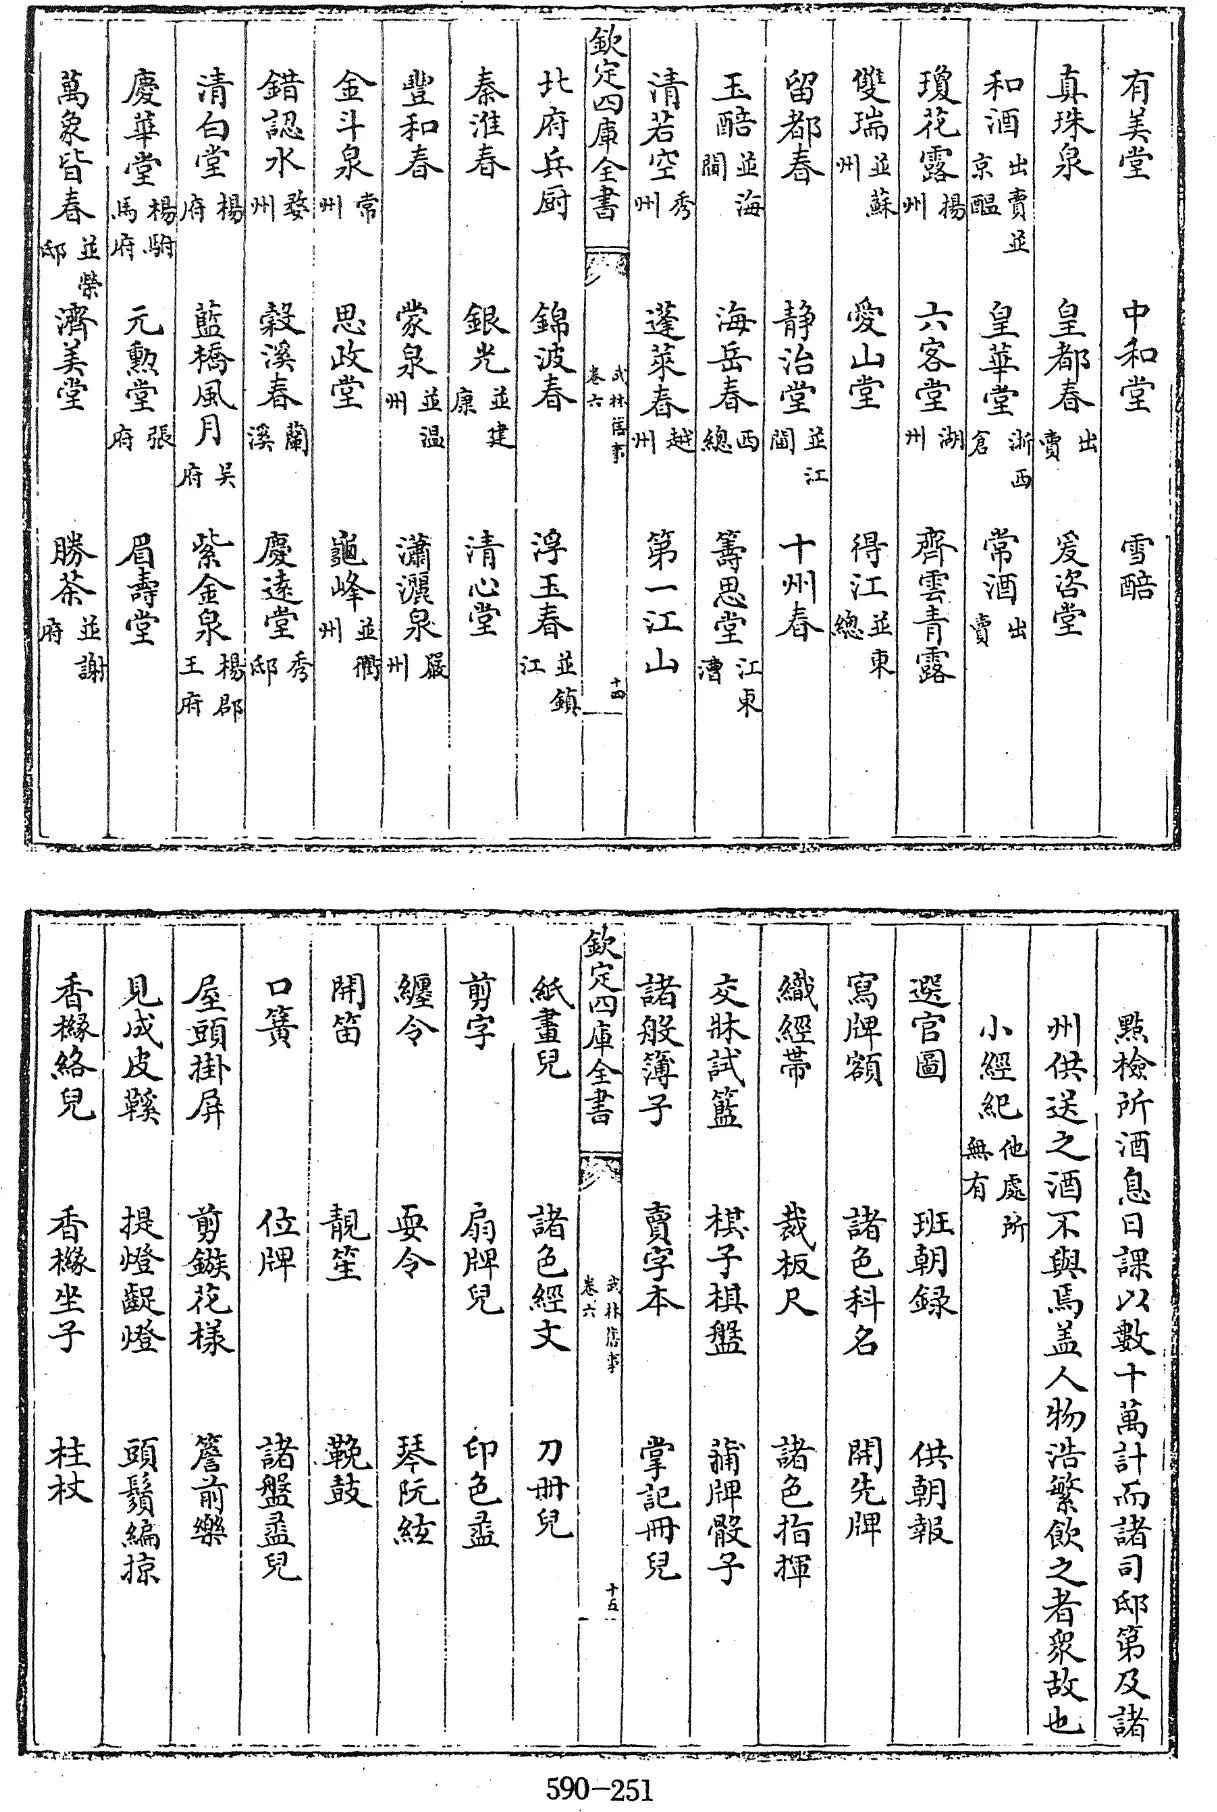 有美堂　中和堂　雪醅
真珠泉　皇都春出賣　爰咨堂
和酒出賣並京醞　皇華堂浙西倉　常酒出賣
瓊花露揚州　六客堂湖州　齊雲青露
雙瑞並蘇州　愛山堂　得江並東總
留都春　静治堂並江閫　十州春
玉醅並海閫　海岳春西總　籌思堂江東漕
清若空秀州　蓬萊春越州　第一江山
欽定四庫全書　武林舊事卷六　十四
北府兵厨　錦波春　浮玉春並鎮江
秦淮春　銀光並建康　清心堂
豐和春　蒙泉並温州　瀟灑泉嚴州
金斗泉常州　思政堂　龜峰並衢州
錯認水婺州　穀溪春蘭溪　慶遠堂秀邸
清白堂楊府　藍橋風月吳府　紫金泉楊郡王府
慶華堂楊駙馬府　元勲堂張府　眉壽堂
萬象皆春並榮邸　濟美堂　勝茶並謝府
點檢所酒息日課以數十萬計而諸司邸第及諸
州供送之酒不與焉盖人物浩繁飲之者衆故也
小經紀他處所無有
選官圖　班朝録　供朝報
寫牌額　諸色科名　開先牌
織經帶　裁板尺　諸色指揮
交牀試籃　棋子棋盤　蒲牌骰子
諸般簿子　賣字本　掌記冊兒
欽定四庫全書　武林舊事卷六　十五
紙畫兒　諸色經文　刀冊兒
剪字　扇牌兒　印色盝
纏令　耍令　琴阮絃
開笛　靚笙　鞔鼓
口簧　位牌　諸盤盝兒
屋頭掛屏　剪鏃花樣　簷前樂
見成皮鞵　提燈龊燈　頭鬚編掠
香櫞絡兒　香櫞坐子　柱杖
590-251